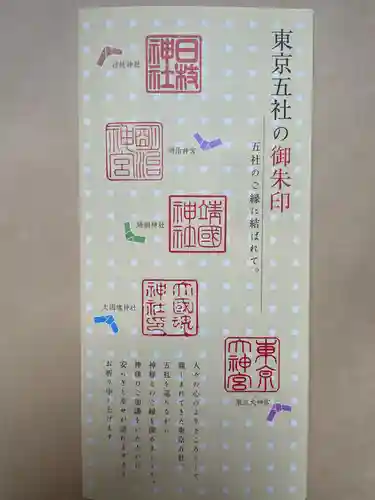 東京五社の御朱印
五社のご縁に結ばれて。
日枝神社
日枝神社
明治神宮
明治神宮
靖國神社
靖國神社
大國魂神社印
大國魂神社
東京大神宮
東京大神宮
人々の心のよりどころとして
親しまれてきた東京五社。
五社を巡りながら
神様とのご縁を深めていき、
神様のご加護をいただいて
安らぎと幸せが訪れますよう
お祈り申し上げます